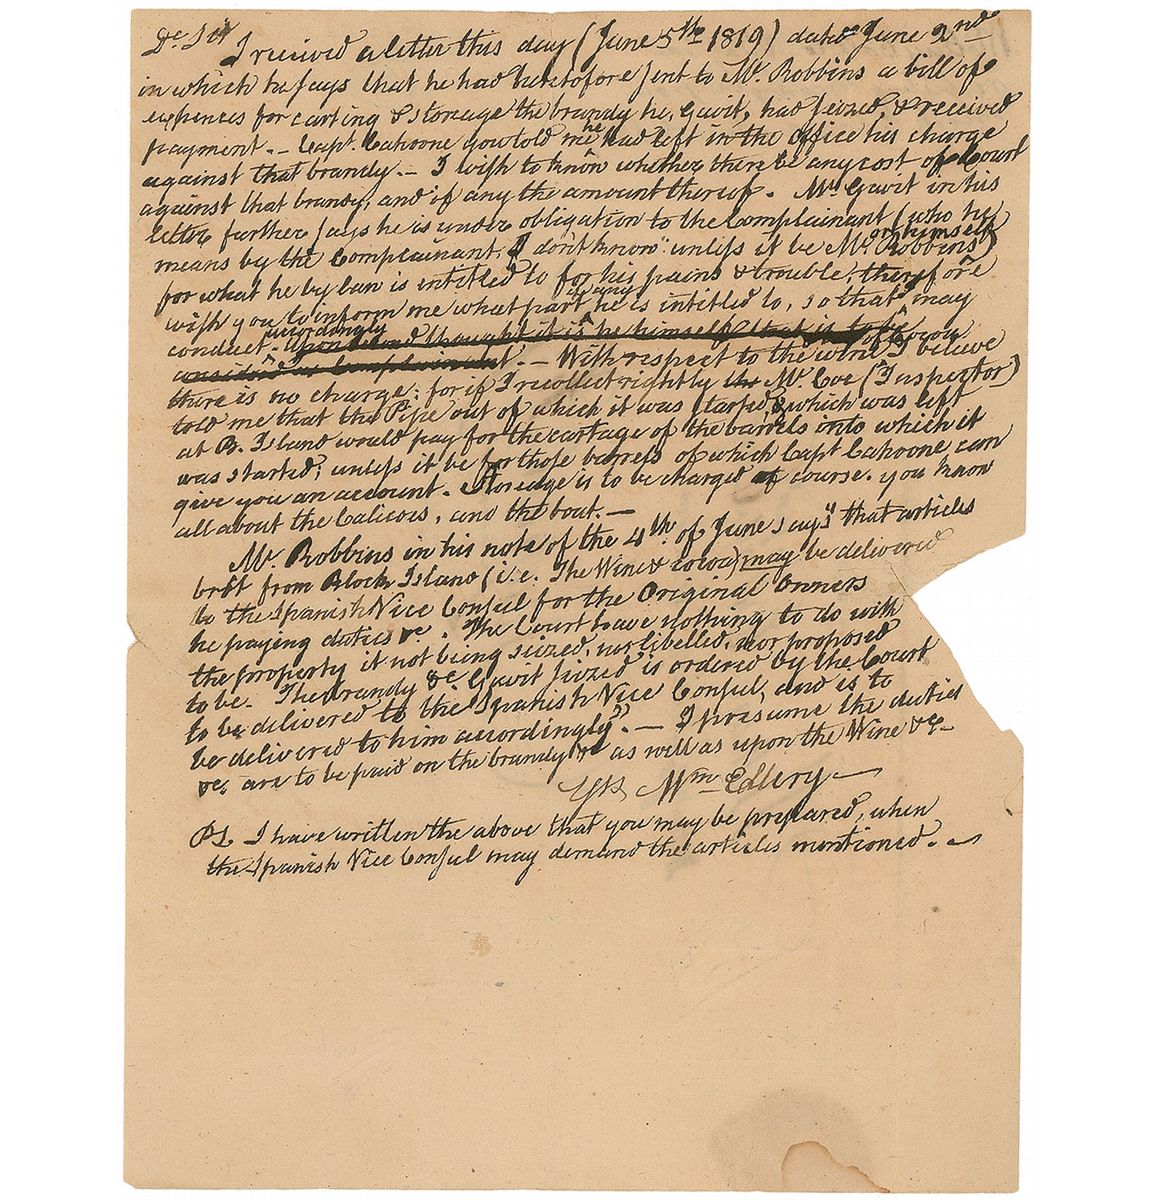 Dr. Sir I received a letter this day (June 5th 1819) dated June 2nd
in which he says that he had heretofore sent to Mr. Robbins a bill of
expences for carting & storeage the brandy he, Gavit, had seized, & received
payment. – Capt. Cahoone you told me he had left in the office his charge
against that brandy. – I wish to know whether there be any cost of Court
against that brandy, and if any the amount thereof. Mr. Gavit in his
letter further says he is under obligation to the Complainant (who he
means by the Complainant, I don't know unless it be Mr. Robbins or himself)
for what he by law is entitled to for his pains & trouble, therefore
wish you to inform me what part if any he is intitled to, so that may
conduct accordingly. Upon second thought it is he himself that is to be
considered as Complainant. – With respect to the wine & Cocoa I believe
there is no charge; for if I recollect rightly Mr. Coe (Inspector)
told me that the Pipe out of which it was started, & which was left
at B. Island would pay for the cartage of the barrels onto which it
was started; unless it be for those barrels of which Capt Cahoone can
give you an account. Storeage is to be charged of course. you know
all about the Calicoes, and the boat. –
Mr. Robbins in his note of the 4th. of June says " that articles
brot from Block Island (i.e. The Wine & cocoa) may be delivered
to the Spanish Vice Consul for the Original Owners
he paying duties &c. The Court have nothing to do with
the property it not being seized, nor libelled, nor proposed
to be. The brandy &c Gavit seized is ordered by the Court
to be delivered to the Spanish Vice Consul, and is to
be delivered to him accordingly". – I presume the duties
&c. are to be paid on the brandy &c as well as upon the Wine &c –
Yrs Wm Ellery
PS. I have written the above that you may be prepared, when
the Spanish Vice Consul may demand the articles mentioned. –